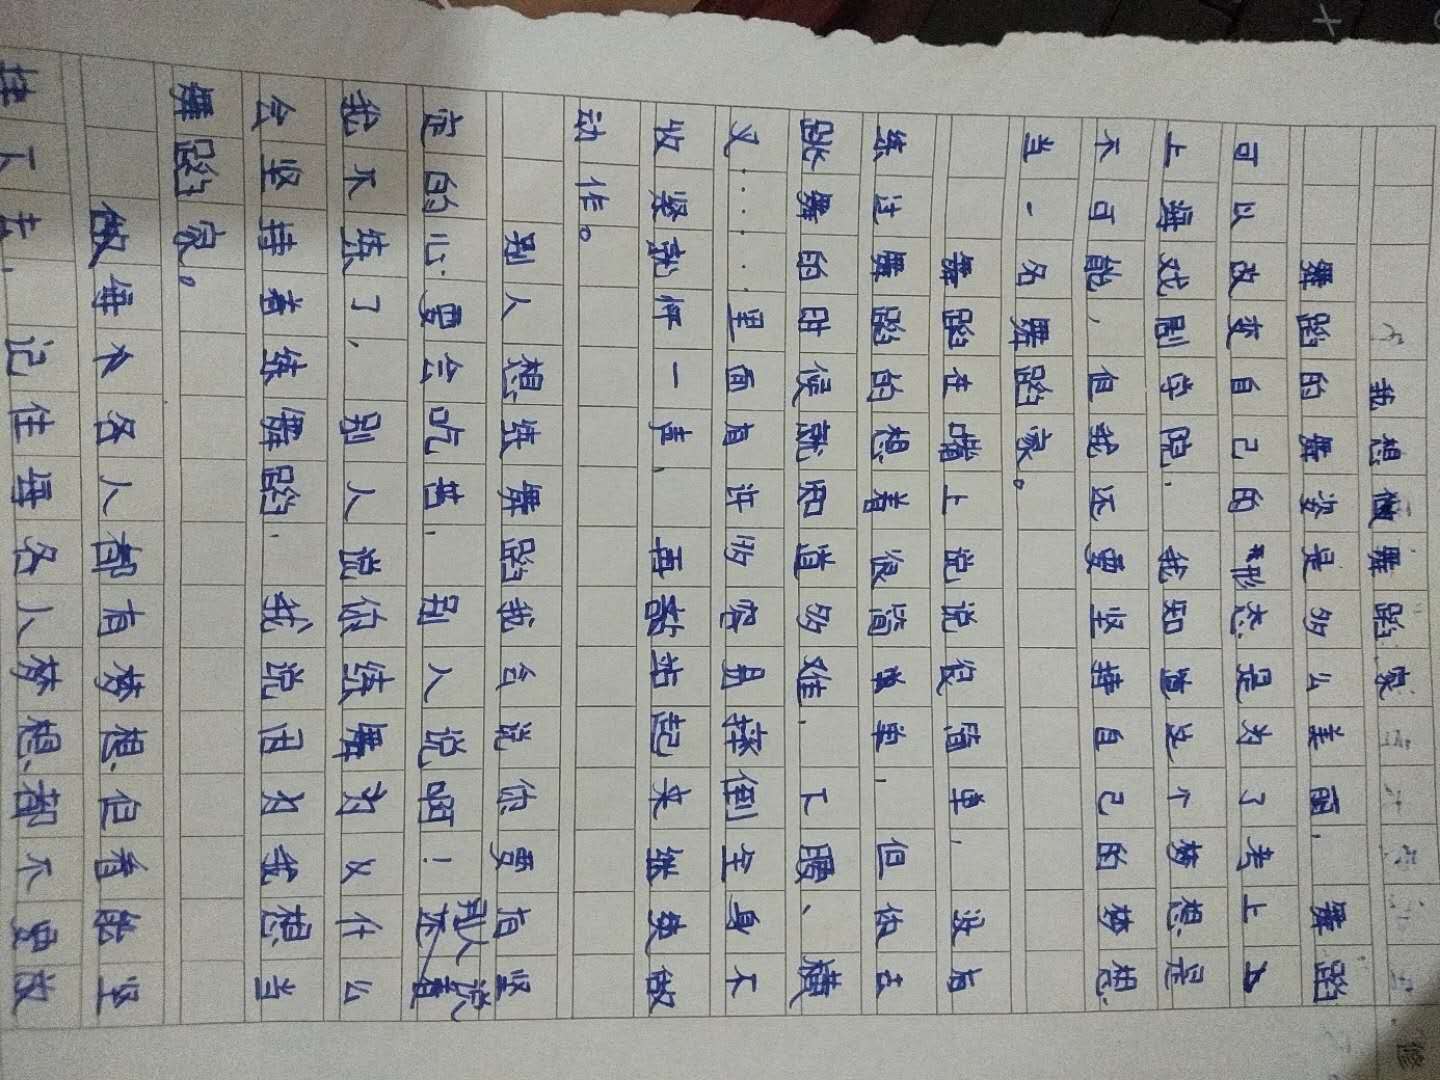 我想做舞蹈家
舞蹈的舞姿是多么美丽，舞蹈
可以改变自己的形态，是为了考上
上海戏剧学院，我知道这个梦想是
不可能，但我还要坚持自己的梦想，
当一名舞蹈家。
舞蹈在嘴上说说很简单，没有
练过舞蹈的想着很简单，但依去
跳舞的时候就知道多难，下腰、横
叉……里面有许多容易摔倒全身不
收紧就怦一声，再站起来继续做
动作。
别人想练舞蹈我会说你要有坚
定的心，要会吃苦，别人说啊！别人说
我不练了，别人说你练舞为义什么
会坚持着练舞蹈，我说因为我想当
舞蹈家。
做每个各人都有梦想，但看能坚
持下去，记住每各人梦想都不要放